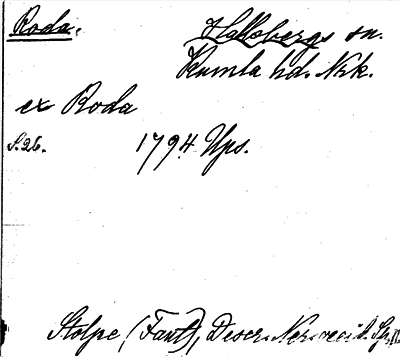 Roda. Hallsbergs sn.
Kumla hd. Nrk.
ex Roda
S. 26. 1794 Ups.
Stolpe (Fant), Descr. Ner.